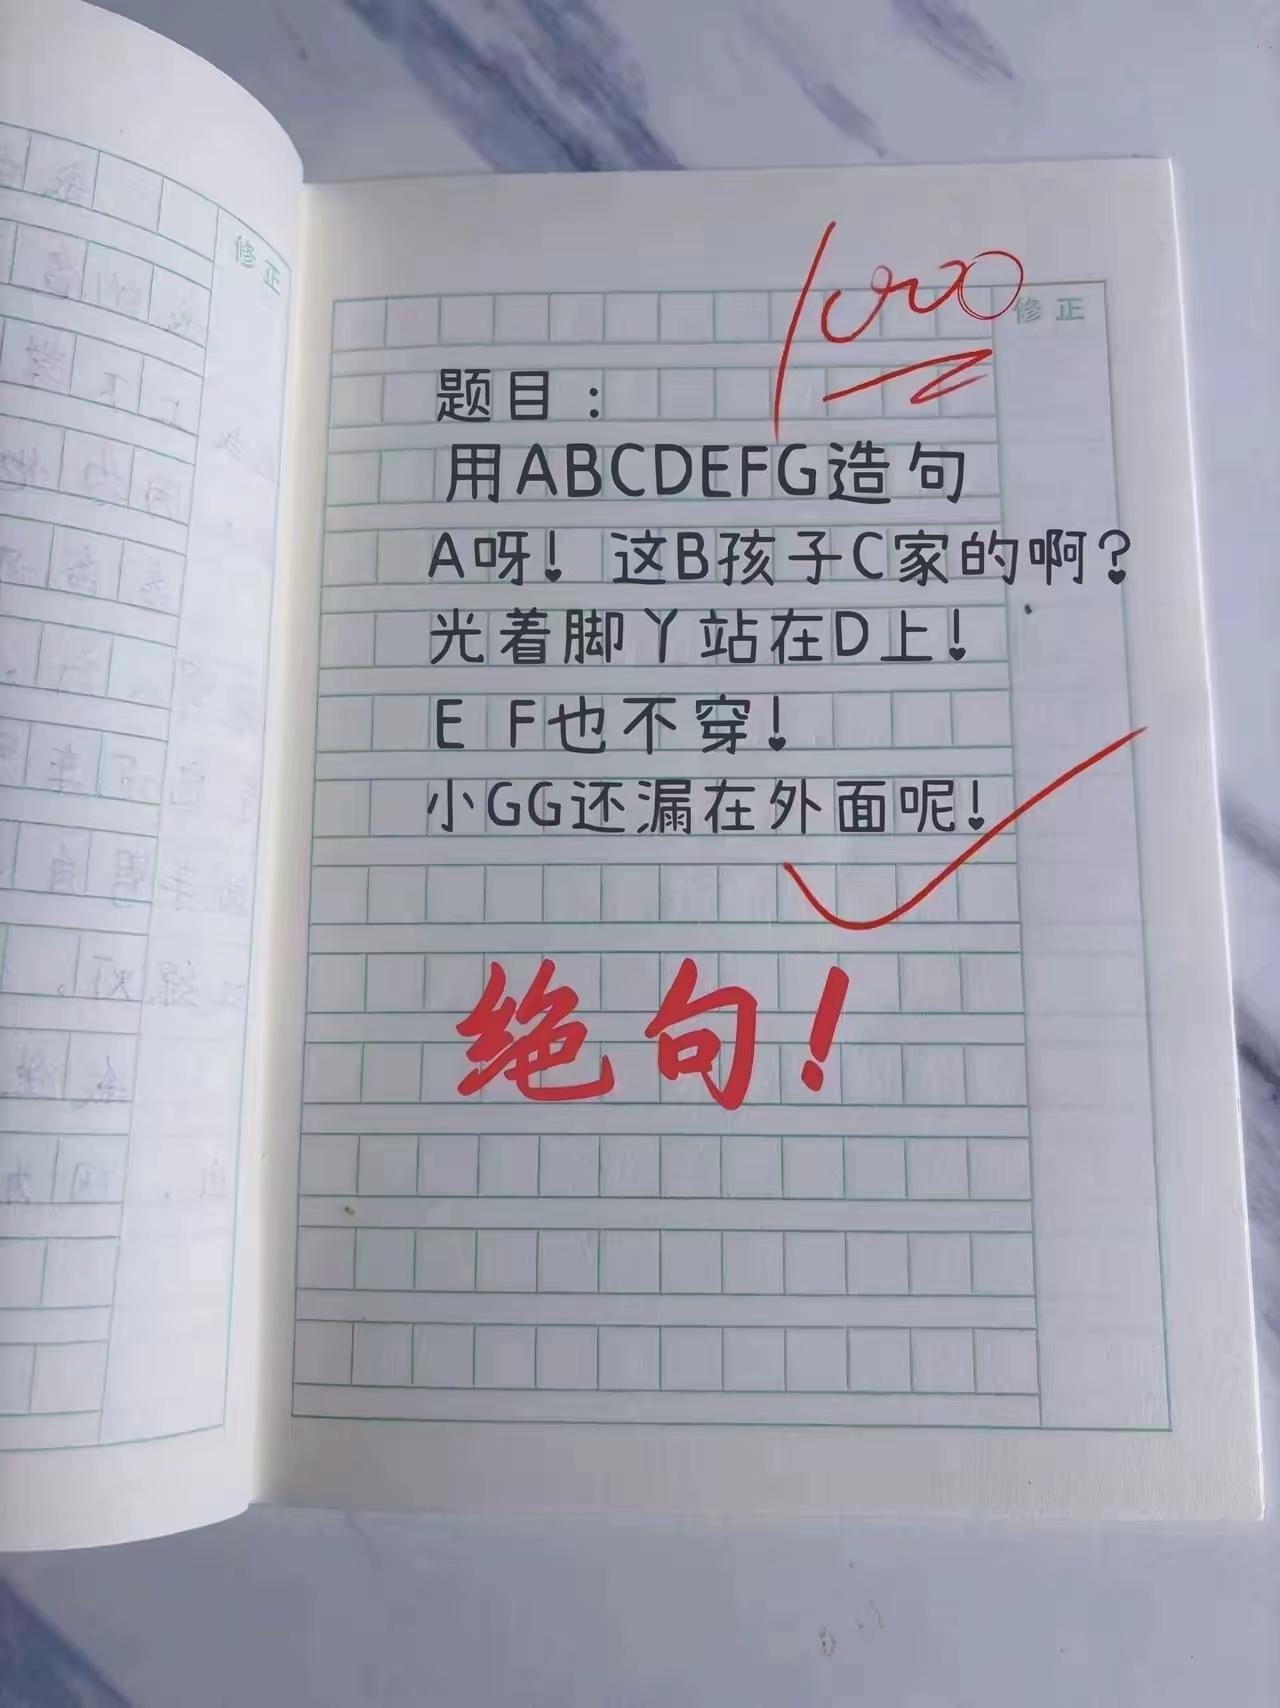 修正
1000
修正
题目：
用ABCDEFG造句
A呀！这B孩子C家的啊？
光着脚丫站在D上！
E F也不穿！
小GG还漏在外面呢！
绝句！